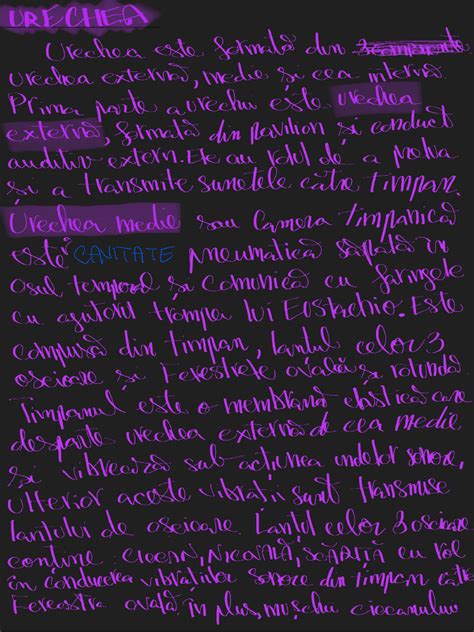 URECHEA
Urechea este formată din 3 componente
urechea externă, medie și cea internă
Prima parte a urechii este urechea
externă, formată din pavilion și conduct
auditiv extern. Ele au rolul de a
și a transmite sunetele către timpan.
Urechea medie sau camera timpanică
este CAVITATE pneumatică săpată în
osul temporal și comunică cu faringele
cu ajutorul trompei lui Eustachio. Este
compusă din timpan, lanțul celor 3
oscioare și ferestrele ovală și rotundă.
Timpanul este o membrană elastică care
desparte urechea externă de cea medie
și vibrează sub acțiunea undelor sonore,
ulterior aceste vibrații sunt transmise
lanțului de oscioare. Lanțul celor 3 oscioare
conține CIOCAN, NICOVALĂ, SCĂRIȚĂ cu rol
în conducerea vibrațiilor sonore din timpan către
fereastra ovală. în plus, mușchiul ciocanului